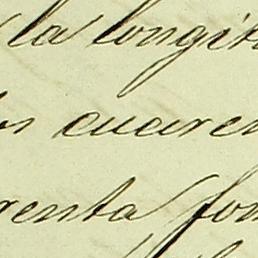 la longit
os cuaren
renta fon